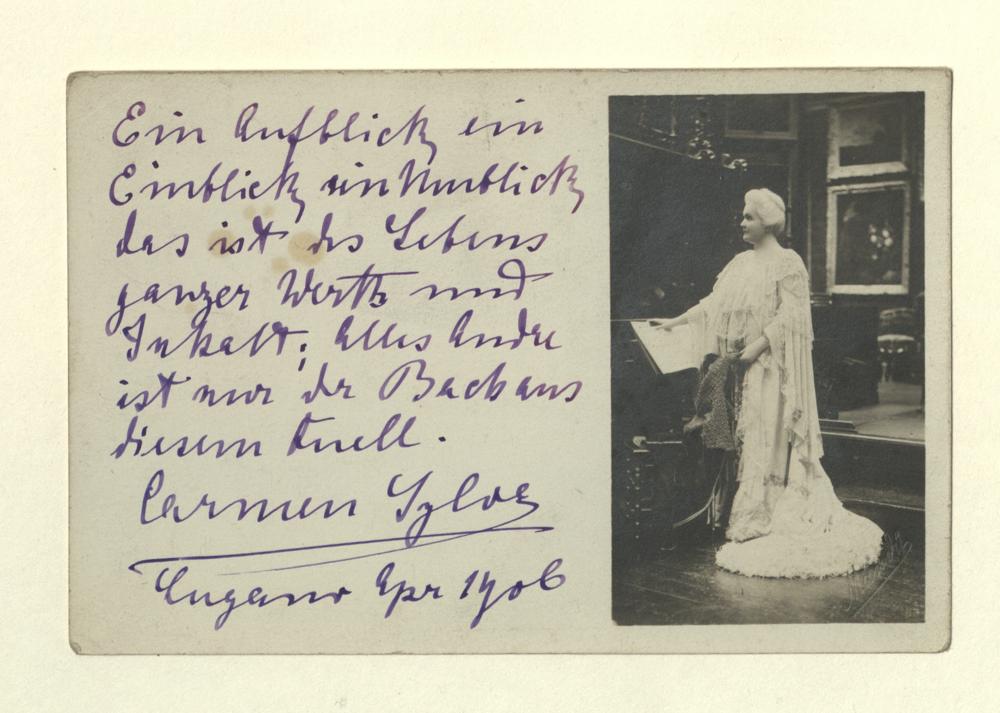 Ein Aufblick, ein
Einblick, ein Umblick,
das ist des Lebens
ganzer Werth und
Inhalt; Alles Andre
ist nur der Bach aus
diesem Quell.
Carmen Sylva
Lugano Apr 1906